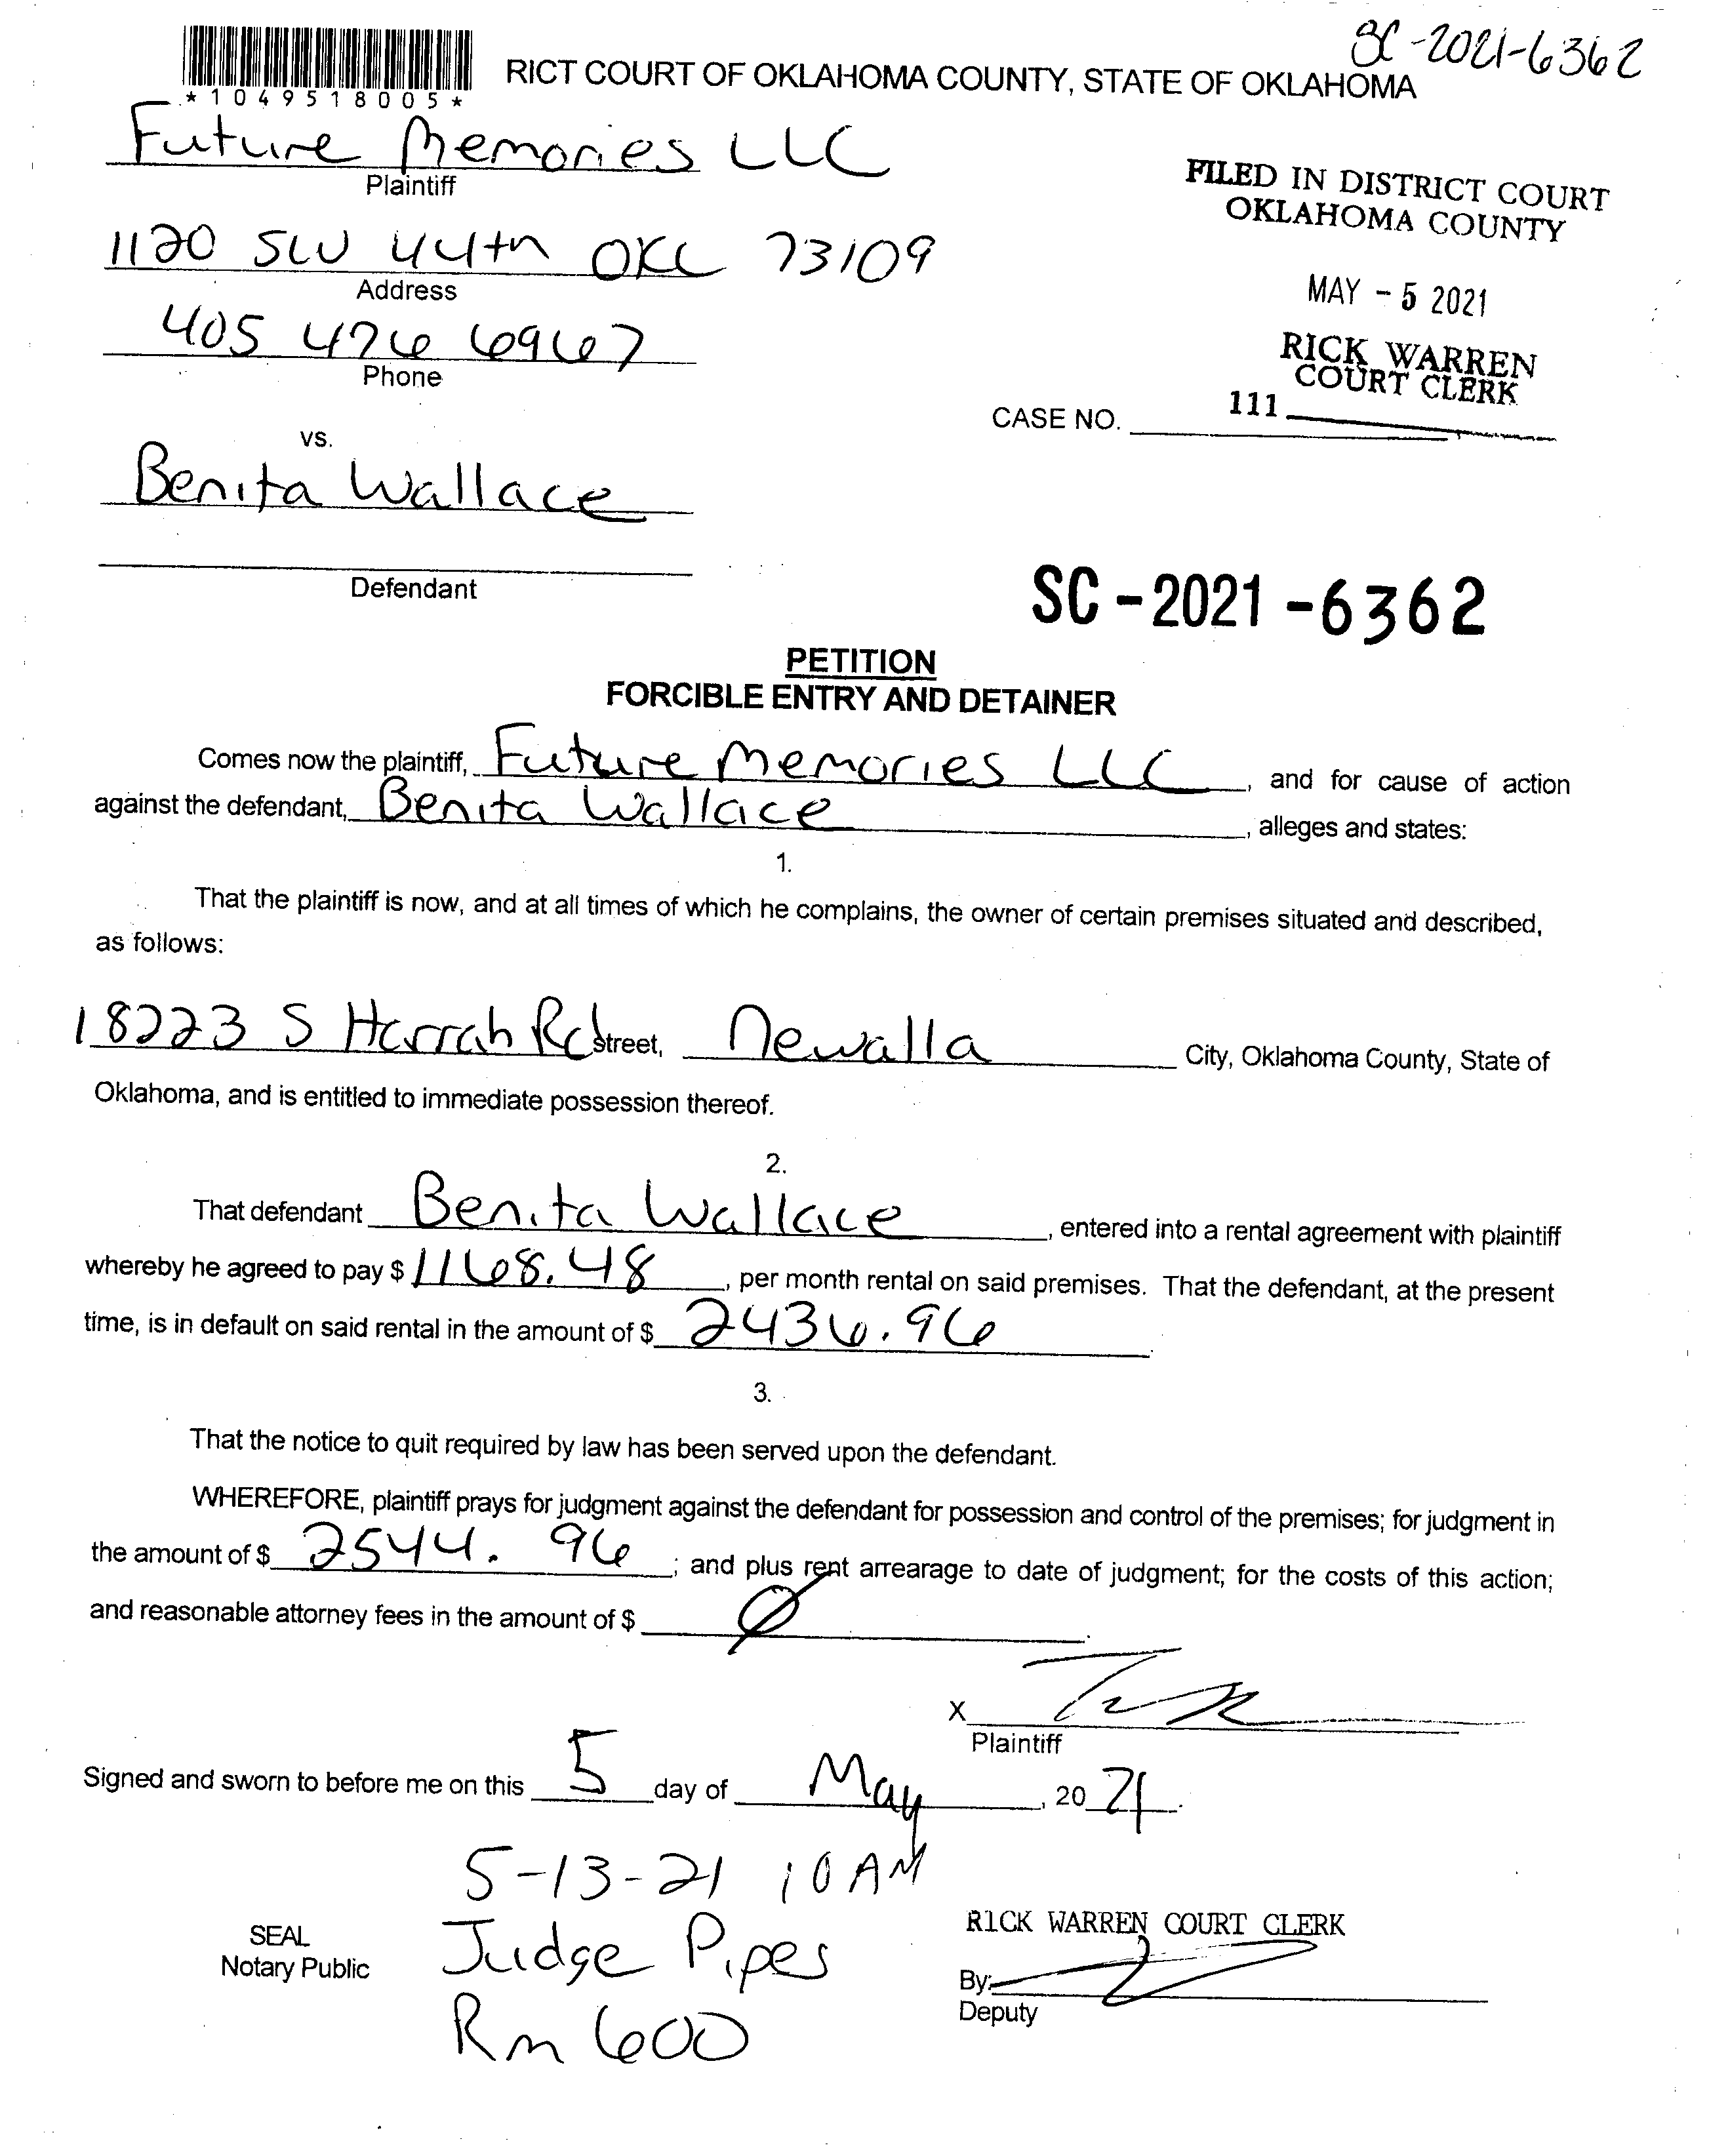 SC-2021-6362
*1049518005*
RICT COURT OF OKLAHOMA COUNTY, STATE OF OKLAHOMA
Future Memories LLC
Plaintiff
FILED IN DISTRICT COURT
OKLAHOMA COUNTY
1120 SW 44th OKC 73109
Address
MAY - 5 2021
405 476 6967
Phone
RICK WARREN
COURT CLERK
CASE NO. 111
vs.
Benita Wallace
Defendant
SC-2021-6362
PETITION
FORCIBLE ENTRY AND DETAINER
Comes now the plaintiff, Future Memories LLC, and for cause of action
against the defendant, Benita Wallace, alleges and states:
1.
That the plaintiff is now, and at all times of which he complains, the owner of certain premises situated and described,
as follows:
18223 S Harrah Rd Street, Newalla City, Oklahoma County, State of
Oklahoma, and is entitled to immediate possession thereof.
2.
That defendant Benita Wallace, entered into a rental agreement with plaintiff
whereby he agreed to pay $ 1168.48, per month rental on said premises. That the defendant, at the present
time, is in default on said rental in the amount of $ 2436.96.
3.
That the notice to quit required by law has been served upon the defendant.
WHEREFORE, plaintiff prays for judgment against the defendant for possession and control of the premises; for judgment in
the amount of $ 2544.96; and plus rent arrearage to date of judgment; for the costs of this action;
and reasonable attorney fees in the amount of $ Ø.
X
Plaintiff
Signed and sworn to before me on this 5 day of May, 2021.
5-13-21 10AM
SEAL
Notary Public
Judge Pipes
Rm 600
RICK WARREN COURT CLERK
By:
Deputy